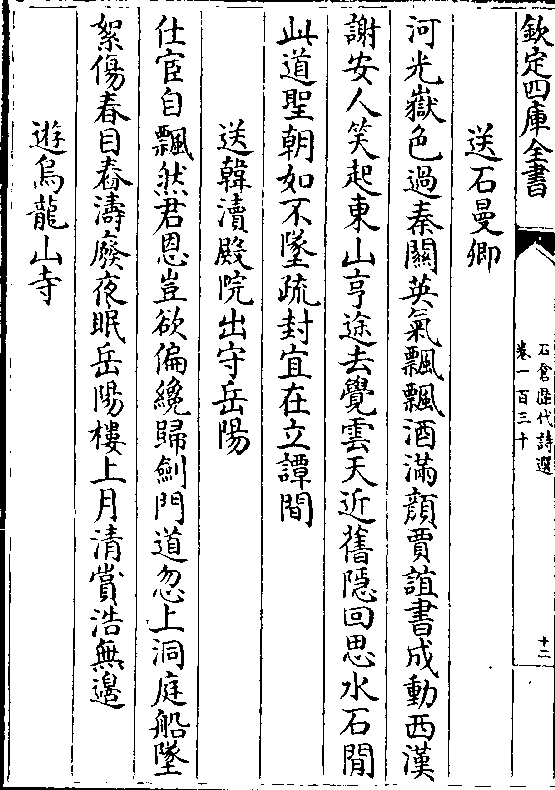 欽定四庫全書
石倉歷代詩選
卷一百三十
十二
送石曼卿
河光嶽色過秦關英氣飄飄酒滿顔賈誼書成動西漢
謝安人笑起東山亨途去覺雲天近舊隱回思水石閒
此道聖朝如不墜疏封宜在立譚間
送韓瀆殿院出守岳陽
仕宦自飄然君恩豈欲偏纔歸劍門道忽上洞庭船墜
絮傷春目舂濤廢夜眠岳陽樓上月清賞浩無邊
遊烏龍山寺